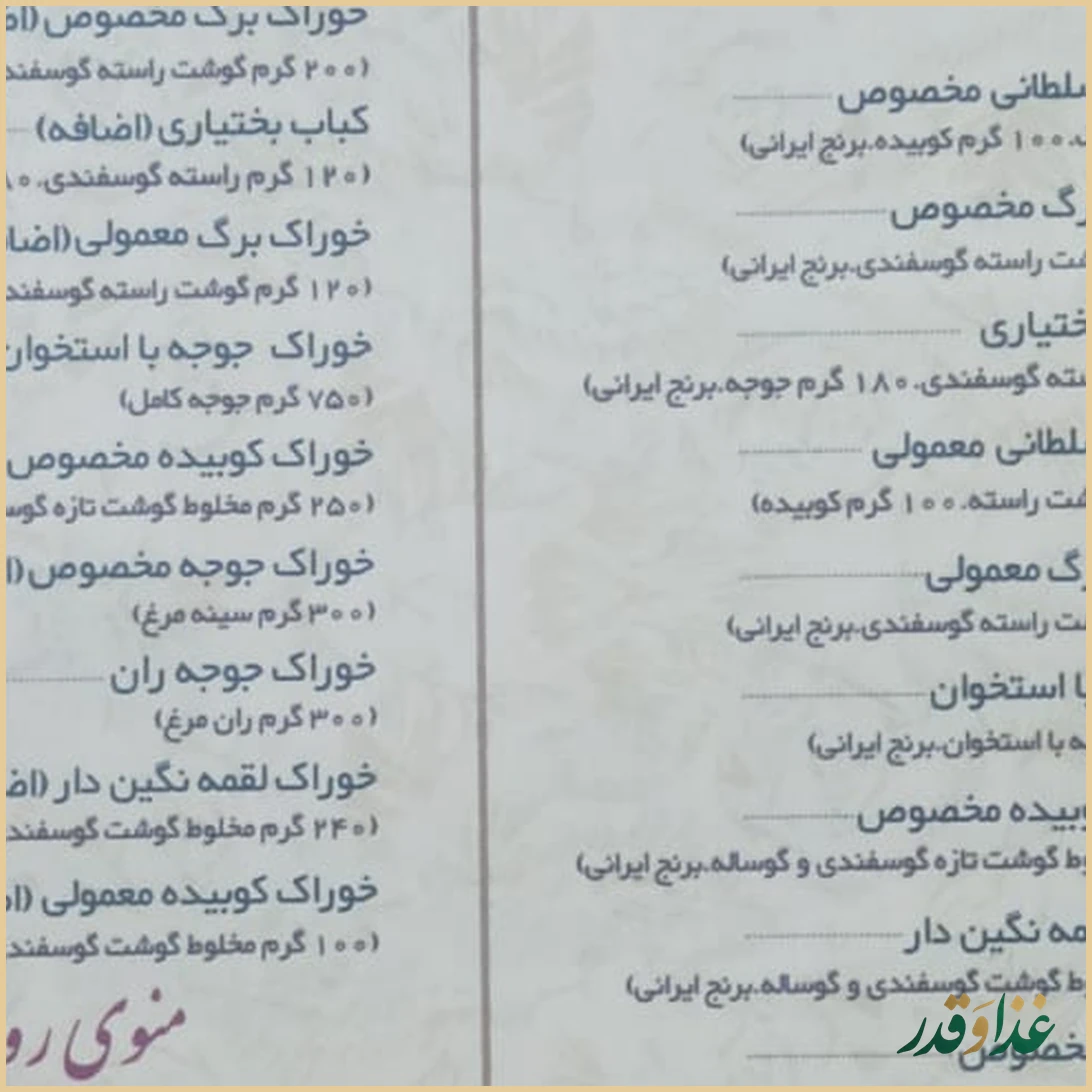 مخصوص
۱۰۰ گرم کوبیده.برنج ایرانی)
مخصوص
راسته گوسفندی.برنج ایرانی)
گوسفندی.۱۸۰ گرم جوجه.برنج ایرانی)
معمولی
راسته.۱۰۰ گرم کوبیده)
معمولی
راسته گوسفندی.برنج ایرانی)
استخوان
با استخوان.برنج ایرانی)
مخصوص
گوشت تازه گوسفندی و گوساله.برنج ایرانی)
نگین دار
گوشت گوسفندی و گوساله.برنج ایرانی)
خوراک برگ مخصوص
(۲۰۰ گرم گوشت راسته گوسفند
کباب بختیاری (اضافه)
(۱۲۰ گرم راسته گوسفندی.
خوراک برگ معمولی (اضا
(۱۲۰ گرم گوشت راسته گوسفند
خوراک جوجه با استخوان
(۷۵۰ گرم جوجه کامل)
خوراک کوبیده مخصوص
(۲۵۰ گرم مخلوط گوشت تازه گوس
خوراک جوجه مخصوص (ا
(۳۰۰ گرم سینه مرغ)
خوراک جوجه ران
(۳۰۰ گرم ران مرغ)
خوراک لقمه نگین دار (اض
(۲۴۰ گرم مخلوط گوشت گوسفند
خوراک کوبیده معمولی (ا
(۱۰۰ گرم مخلوط گوشت گوسفند
منوی رو
غذا و قدر